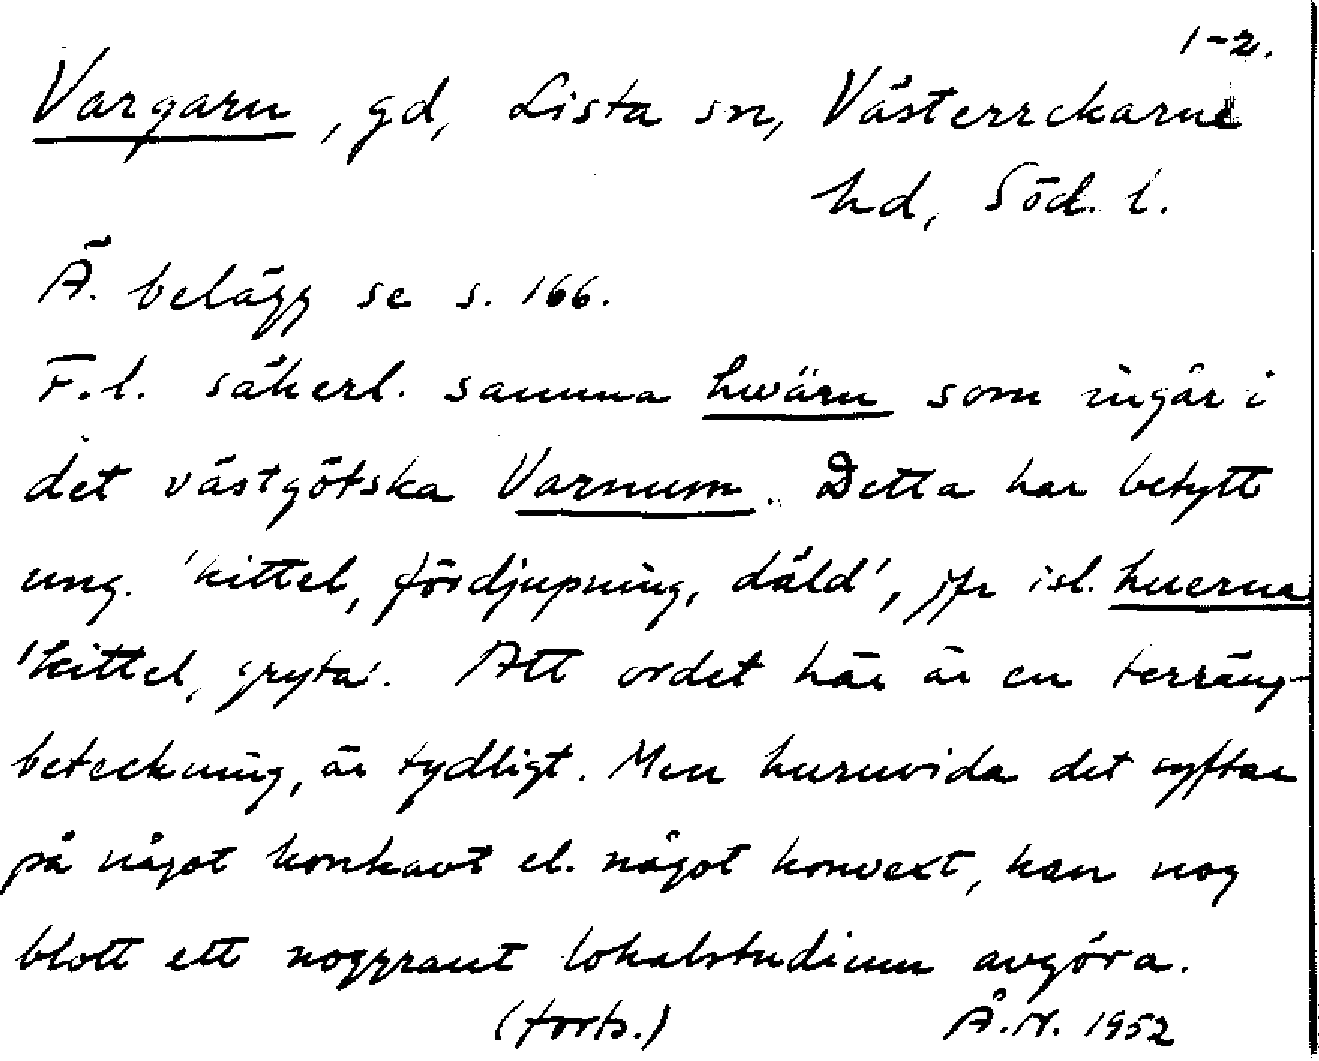 1-2.
Vargarn, gd, Lista sn, Västerrekarne
hd, Söd. l.
Ä. belägg se s. 166.
F.l. säkerl. samma hwärn som ingår i
det västgötska Varnum. Detta har betytt
ung. 'kittel, fördjupning, däld', jfr isl. huerna
'kittel, gryta'. Att ordet här är en terräng-
beteckning, är tydligt. Men huruvida det syftar
på något konkavt el. något konvext, kan nog
blott ett noggrant lokalstudium avgöra.
(forts.) Å.N. 1952